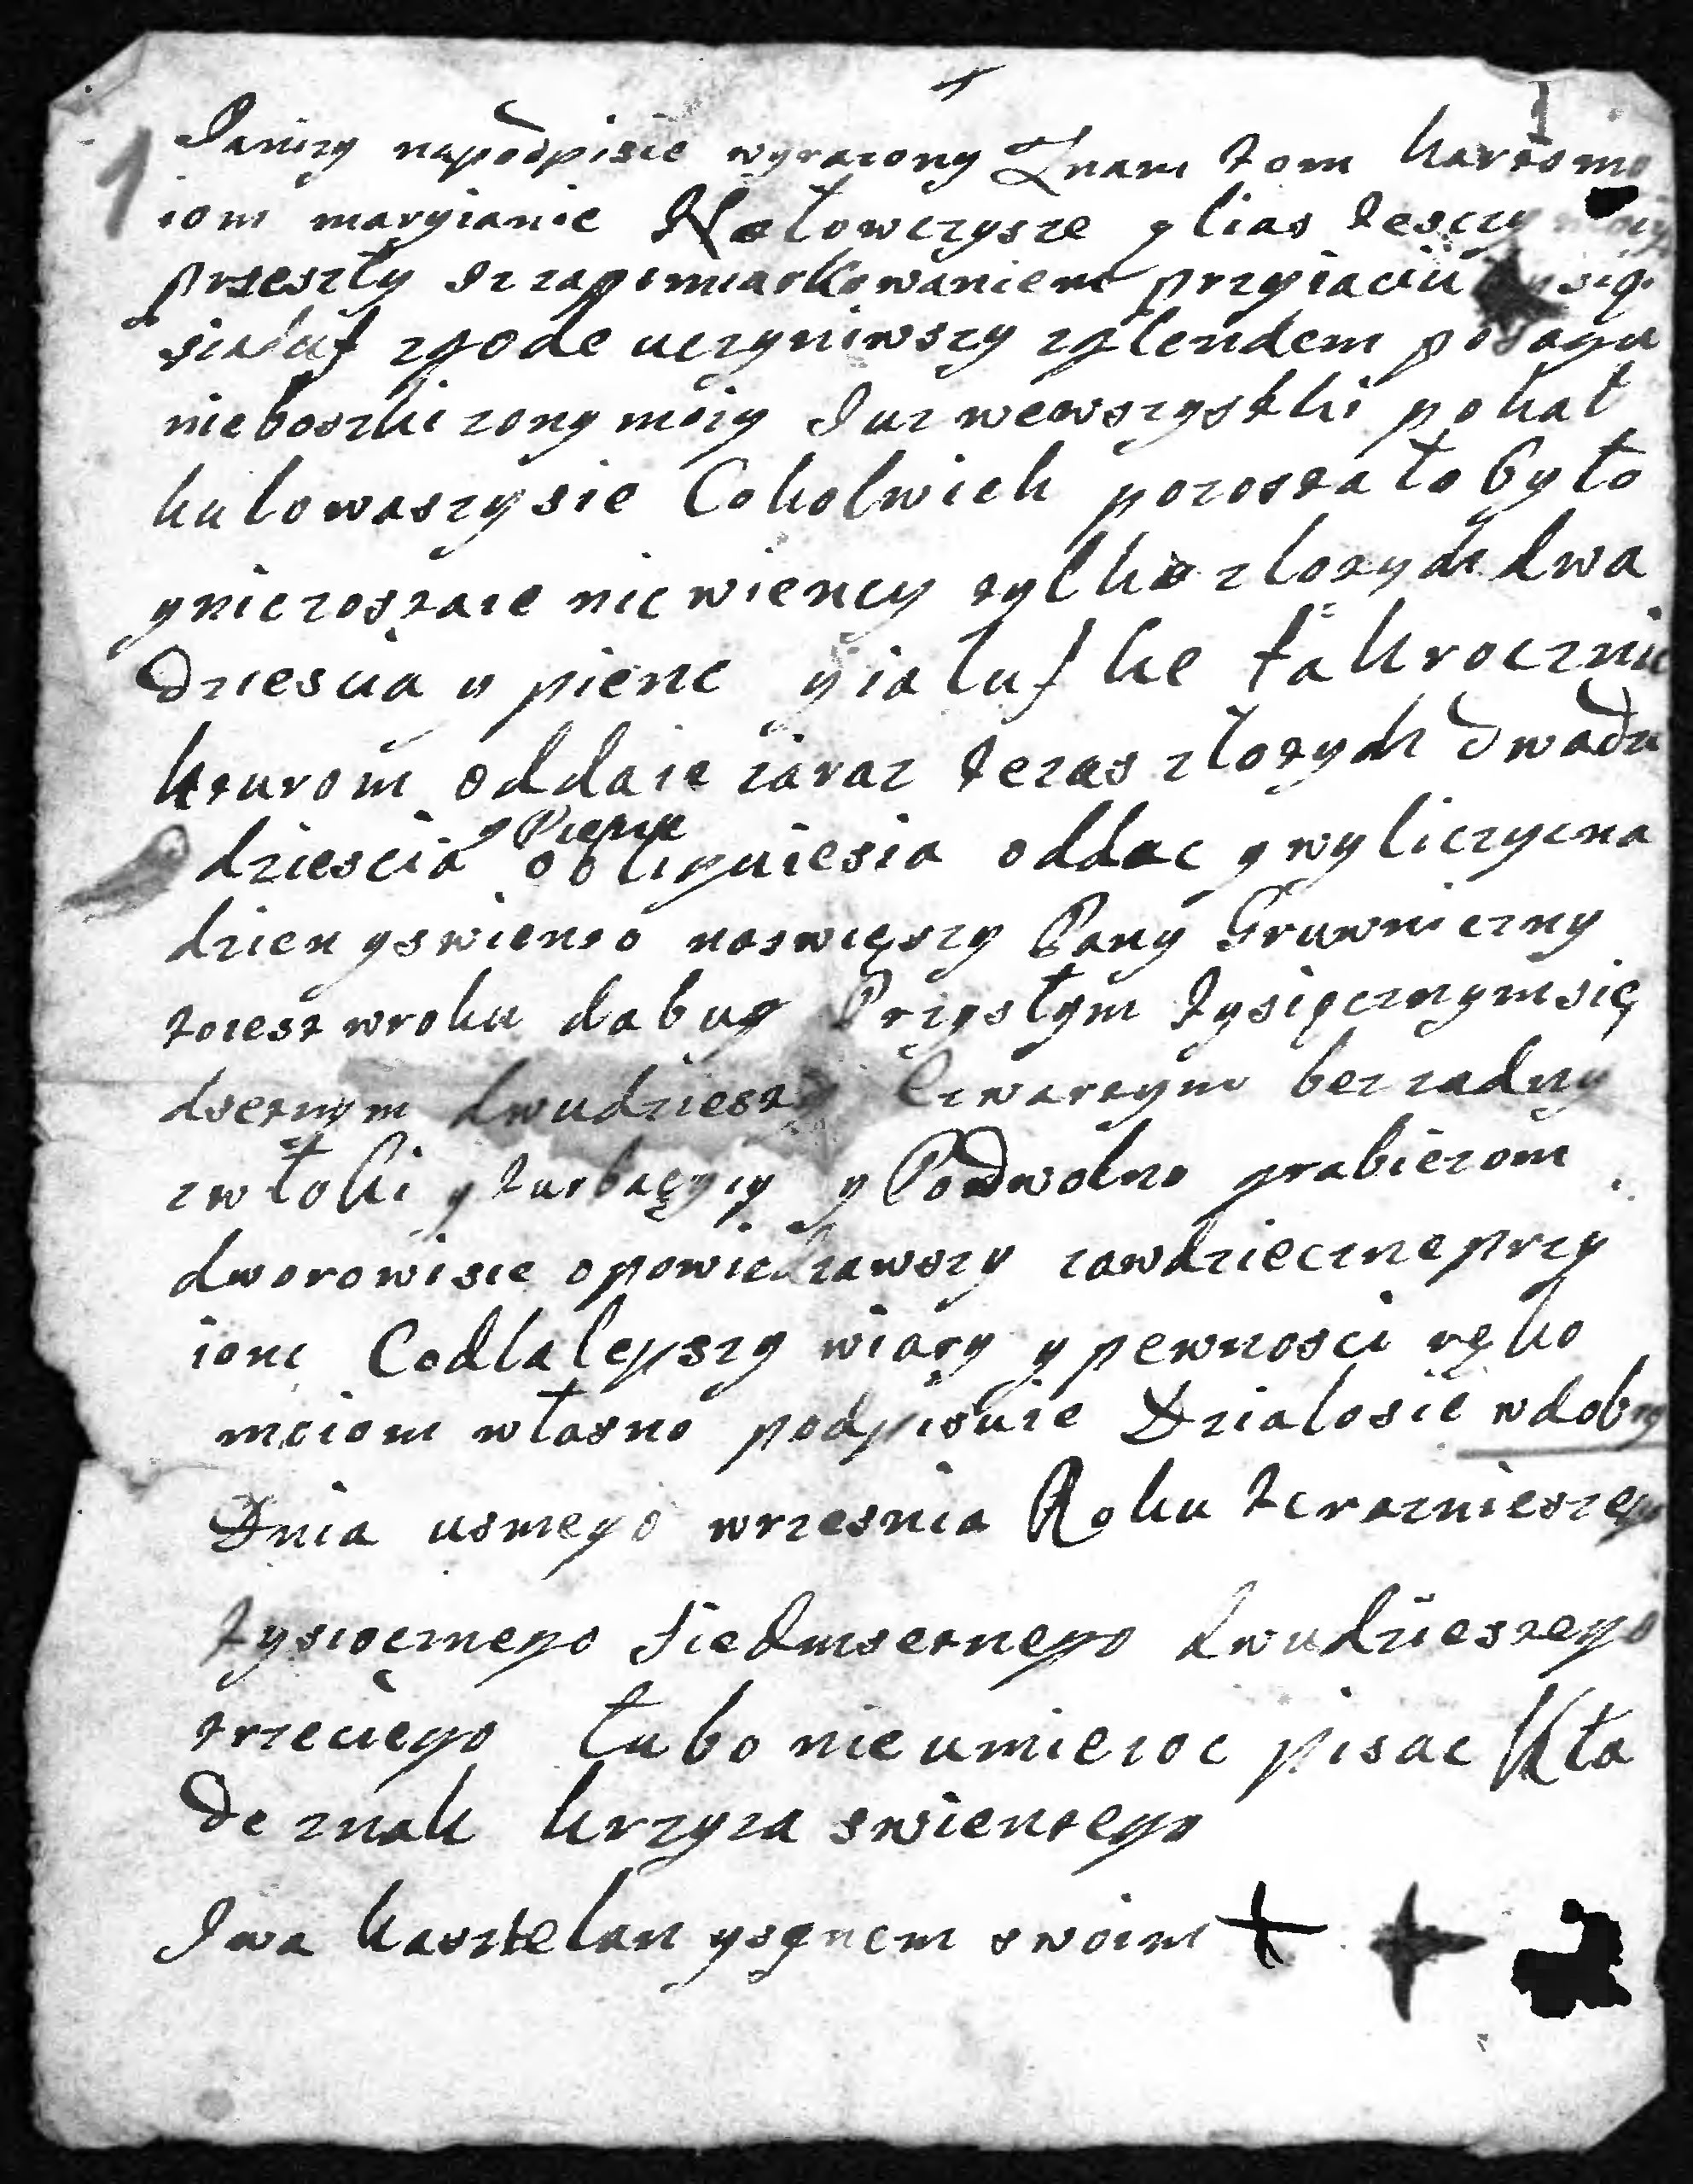 1
Ja niży napodpisie wyrazony Znam tom kartom
iom maryianie Hołowczysze y lias tesczy moiy
przeszły sz zapomiarkowaniem przyiaciu
zgode uczyniwszy zglendem posagu
nieboszki zony moiy Iuz wewszystki pokal
kulowaszysie Cokolwiek pozostało było
yniezostaie nic wiency tylko złotych dwa
Dziescia y pienc y iałufke takroczni
kturom oddaie zaraz teras złotych dwadz
dziescia y Piencz obliguiesia oddac y wyliczycna
dzien yswiento naswięszy Pany Gruwniczny
toiest wroku dabug Przystym tysięcznymsie
dsetnym dwudziesty Czwartym bez zadny
zwłoki y turbacyiy y Podwolno grabiezom
dworowisie opowiedzawszy zawdzieczneprzy
ione Codlalepszy wiary y pewnosci ręko
moiom własno podpisuie Dzialosie wdobry
Dnia usmego wrzesnia Roku teraznieszego
tysiocznego siedmsetnego dwudziestego
trzeciego łubo nie umieioc pisac Kła
de znak krzyza swientego
Iwa kasztelan ysynem swoim + +